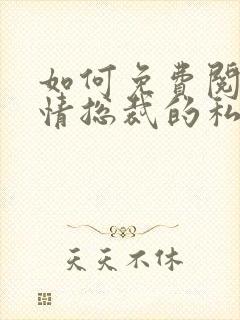 如何免费阅
情总裁的私
天天不休